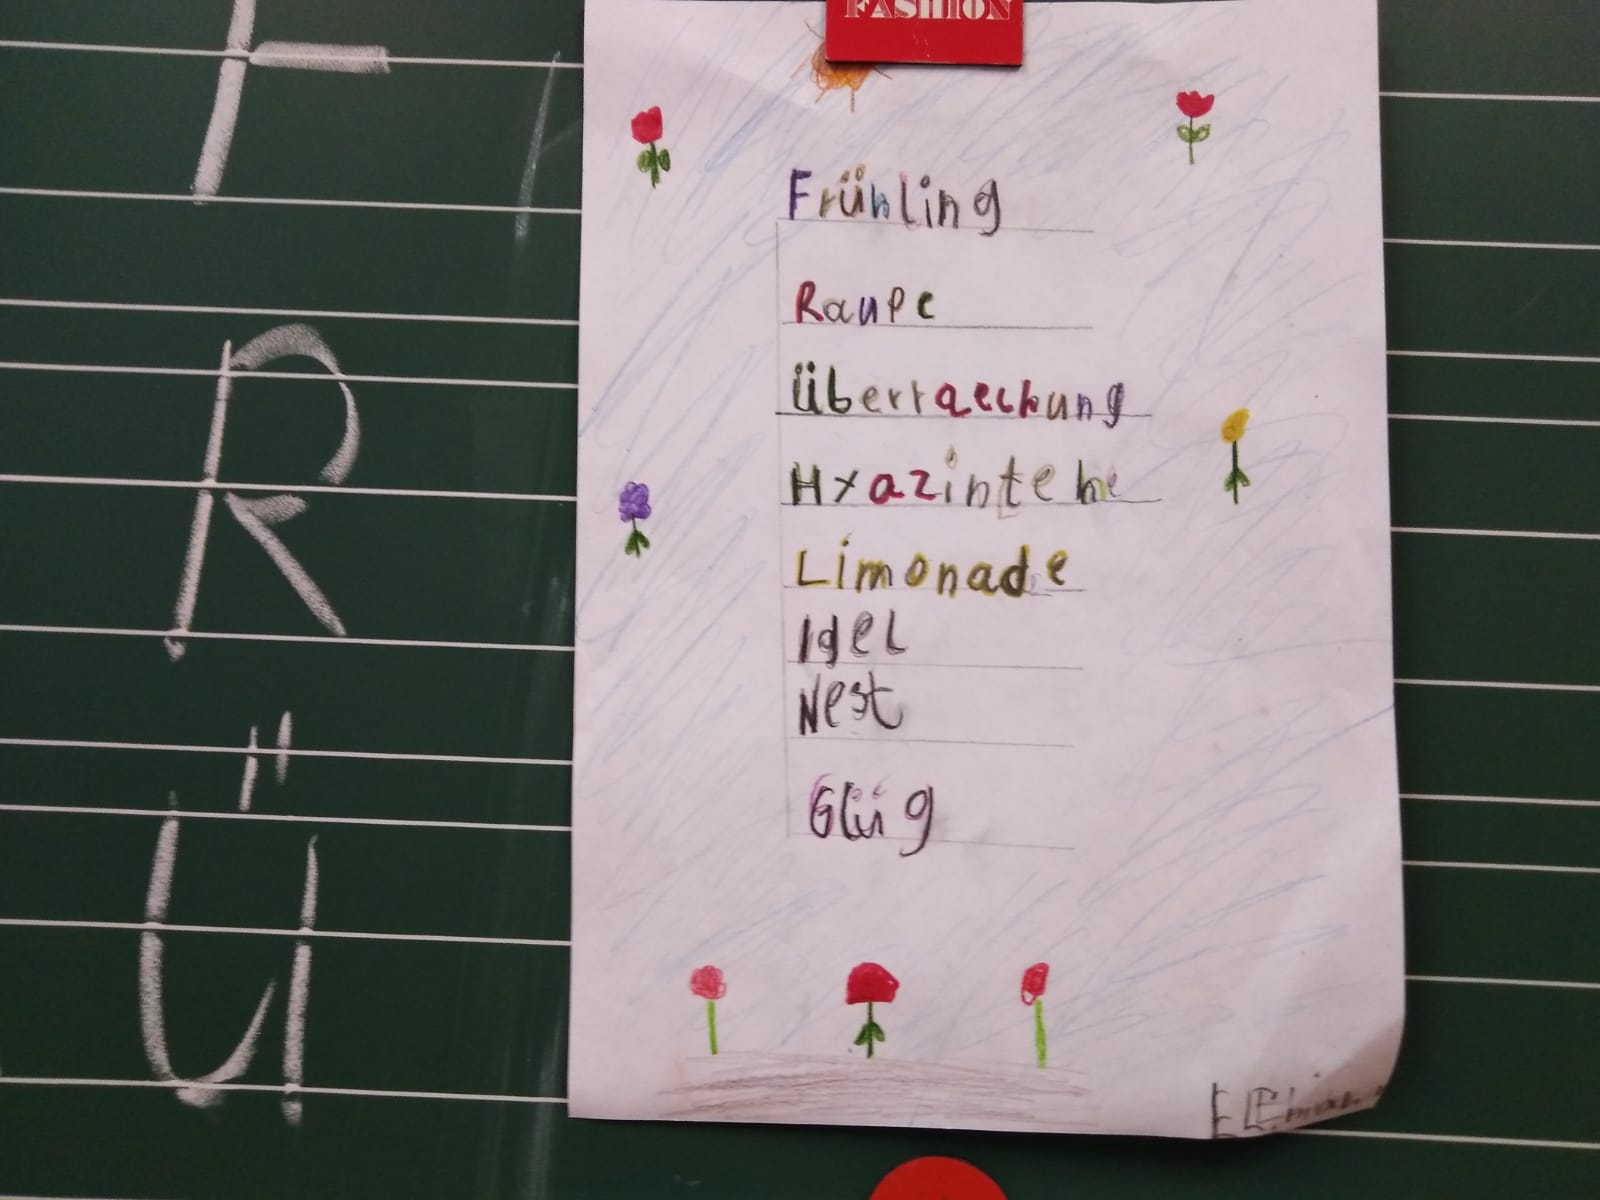 FASHION
F
R
Ü
Frühling
Raupe
Überraechung
Hyazintehe
Limonade
Igel
Nest
Glüg